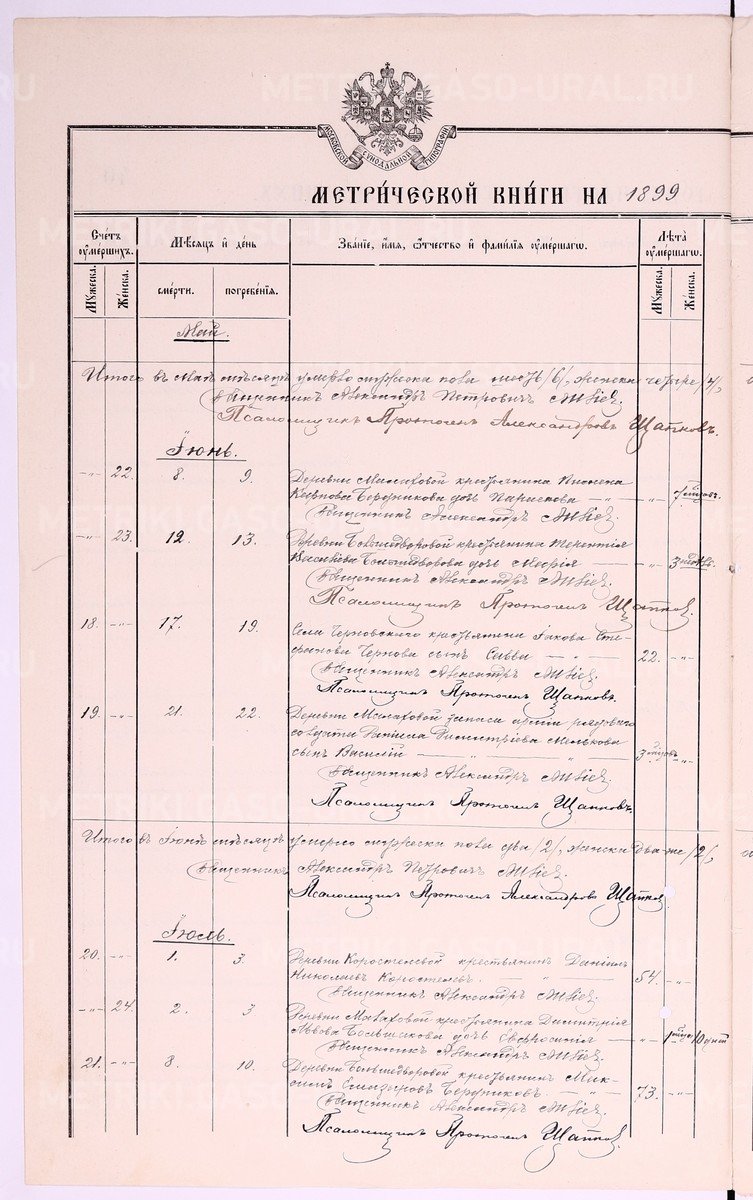 МОСКОВСКОЙ СѴНОДАЛЬНОЙ ТИПОГРАФІИ
МЕТРИ́ЧЕСКОЙ КНИ́ГИ НА 1899
Счётъ ᲂу҆ме́ршихъ. Мѣ́сяцъ и҆ де́нь Зва́нїе, и҆́мя, ѻ҆́тчество и҆ фами́лїя ᲂу҆ме́ршагѡ. Лѣ́та ᲂу҆ме́ршагѡ.
Мꙋ́жеска. Же́нска. сме́рти. погребе́нїя. Мꙋ́жеска. Же́нска.
Май.
Итого въ Маѣ мѣсяцѣ умерло мужска пола шесть /6/, женска четыре /4/,
Священникъ Александръ Петровичъ
Псаломщикъ Протогенъ Александровъ Щапковъ.
Іюнь.
-"- 22. 8. 9. Деревни Малаховой крестьянина Пимена
Бердникова дочь Параскева -"-
Священникъ Александръ
-"- 23. 12. 13. Деревни крестьянина Терентія
Васильева дочь Марія -"- 3
Священникъ Александръ
Псаломщикъ Протогенъ Щапков.
18. -"- 17. 19. Села Черновского крестьянина Іакова Сте-
фанова Чернова сынъ Савва 22. -"-
Священникъ Александръ
Псаломщикъ Протогенъ Щапковъ.
19. -"- 21. 22. Деревни Малаховой запаса арміи рядового
солдата Даніила Димитріева Мелькова
сынъ Василій 3 -"-
Священникъ Александръ
Псаломщикъ Протогенъ Щапковъ.
Итого въ Іюнѣ мѣсяцѣ умерло мужска пола два /2/, женска два-же /2/,
Священникъ Александръ Петровичъ
Псаломщикъ Протогенъ Александровъ Щапков.
Іюль.
20. -"- 1. 3. Деревни Коростелевой крестьянинъ Даніилъ
Николаевъ Коростелевъ. 54. -"-
Священникъ Александръ
-"- 24. 2. 3 Деревни Малаховой крестьянина Димитрія
Львова Большакова дочь Евфросинія -"- 1 10 дней
Священникъ Александръ
21. -"- 8. 10. Деревни крестьянинъ Мак-
симъ Бердниковъ. 73. -"-
Священникъ Александръ
Псаломщикъ Протогенъ Щапков.